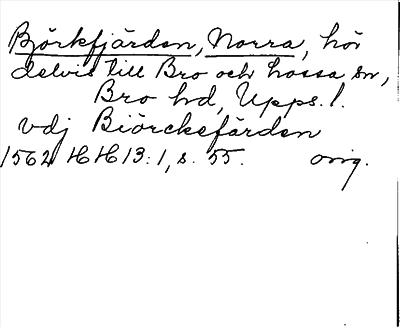 Björkfjärden, Norra, hör
delvis till Bro och Lossa sn,
Bro hd, Upps. l.
vdj Biörckefärden
1562 HH 13:1, s. 55. orig.